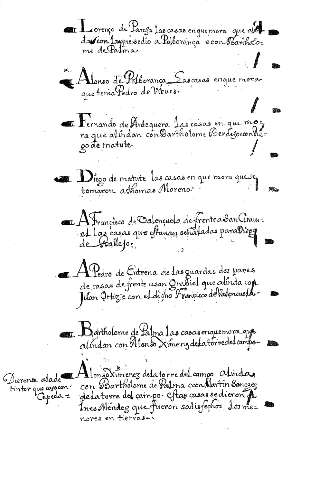 Lorenço de Pareja las casas en que mora que alin
dan con
me de Palma.
Alonso de Pe Las casas en que mora
que tenia Pedro de
Fernando de Andoquera. las casas en que mo
ra que alindan con Bartholome con
go de matute.
Diego de matute las casas en que mora que se
tomaron a Thomas Moreno.
A Francisco de Valençuela de frente a San
el las casas que estauan señaladas para Diego
de Vallejo.
A Pedro de Eitrena de las guardas dos pares
de casas de frente a san Grabiel que alinda con
Juan Ortiz e con el dicho Francisco de Valençuela
Bartholome de Palma las casas en que mora que
alindan con Alonso Ximenez de la torre del campo
Alonso Ximenez de la torre del campo. alindan
con Bartholome de Palma con Martin Sanchez
de la torre del campo. estas casas se dieron a
Ines Mendez que fueron los me
nores en tierras
tintor que caso con
Cepeda